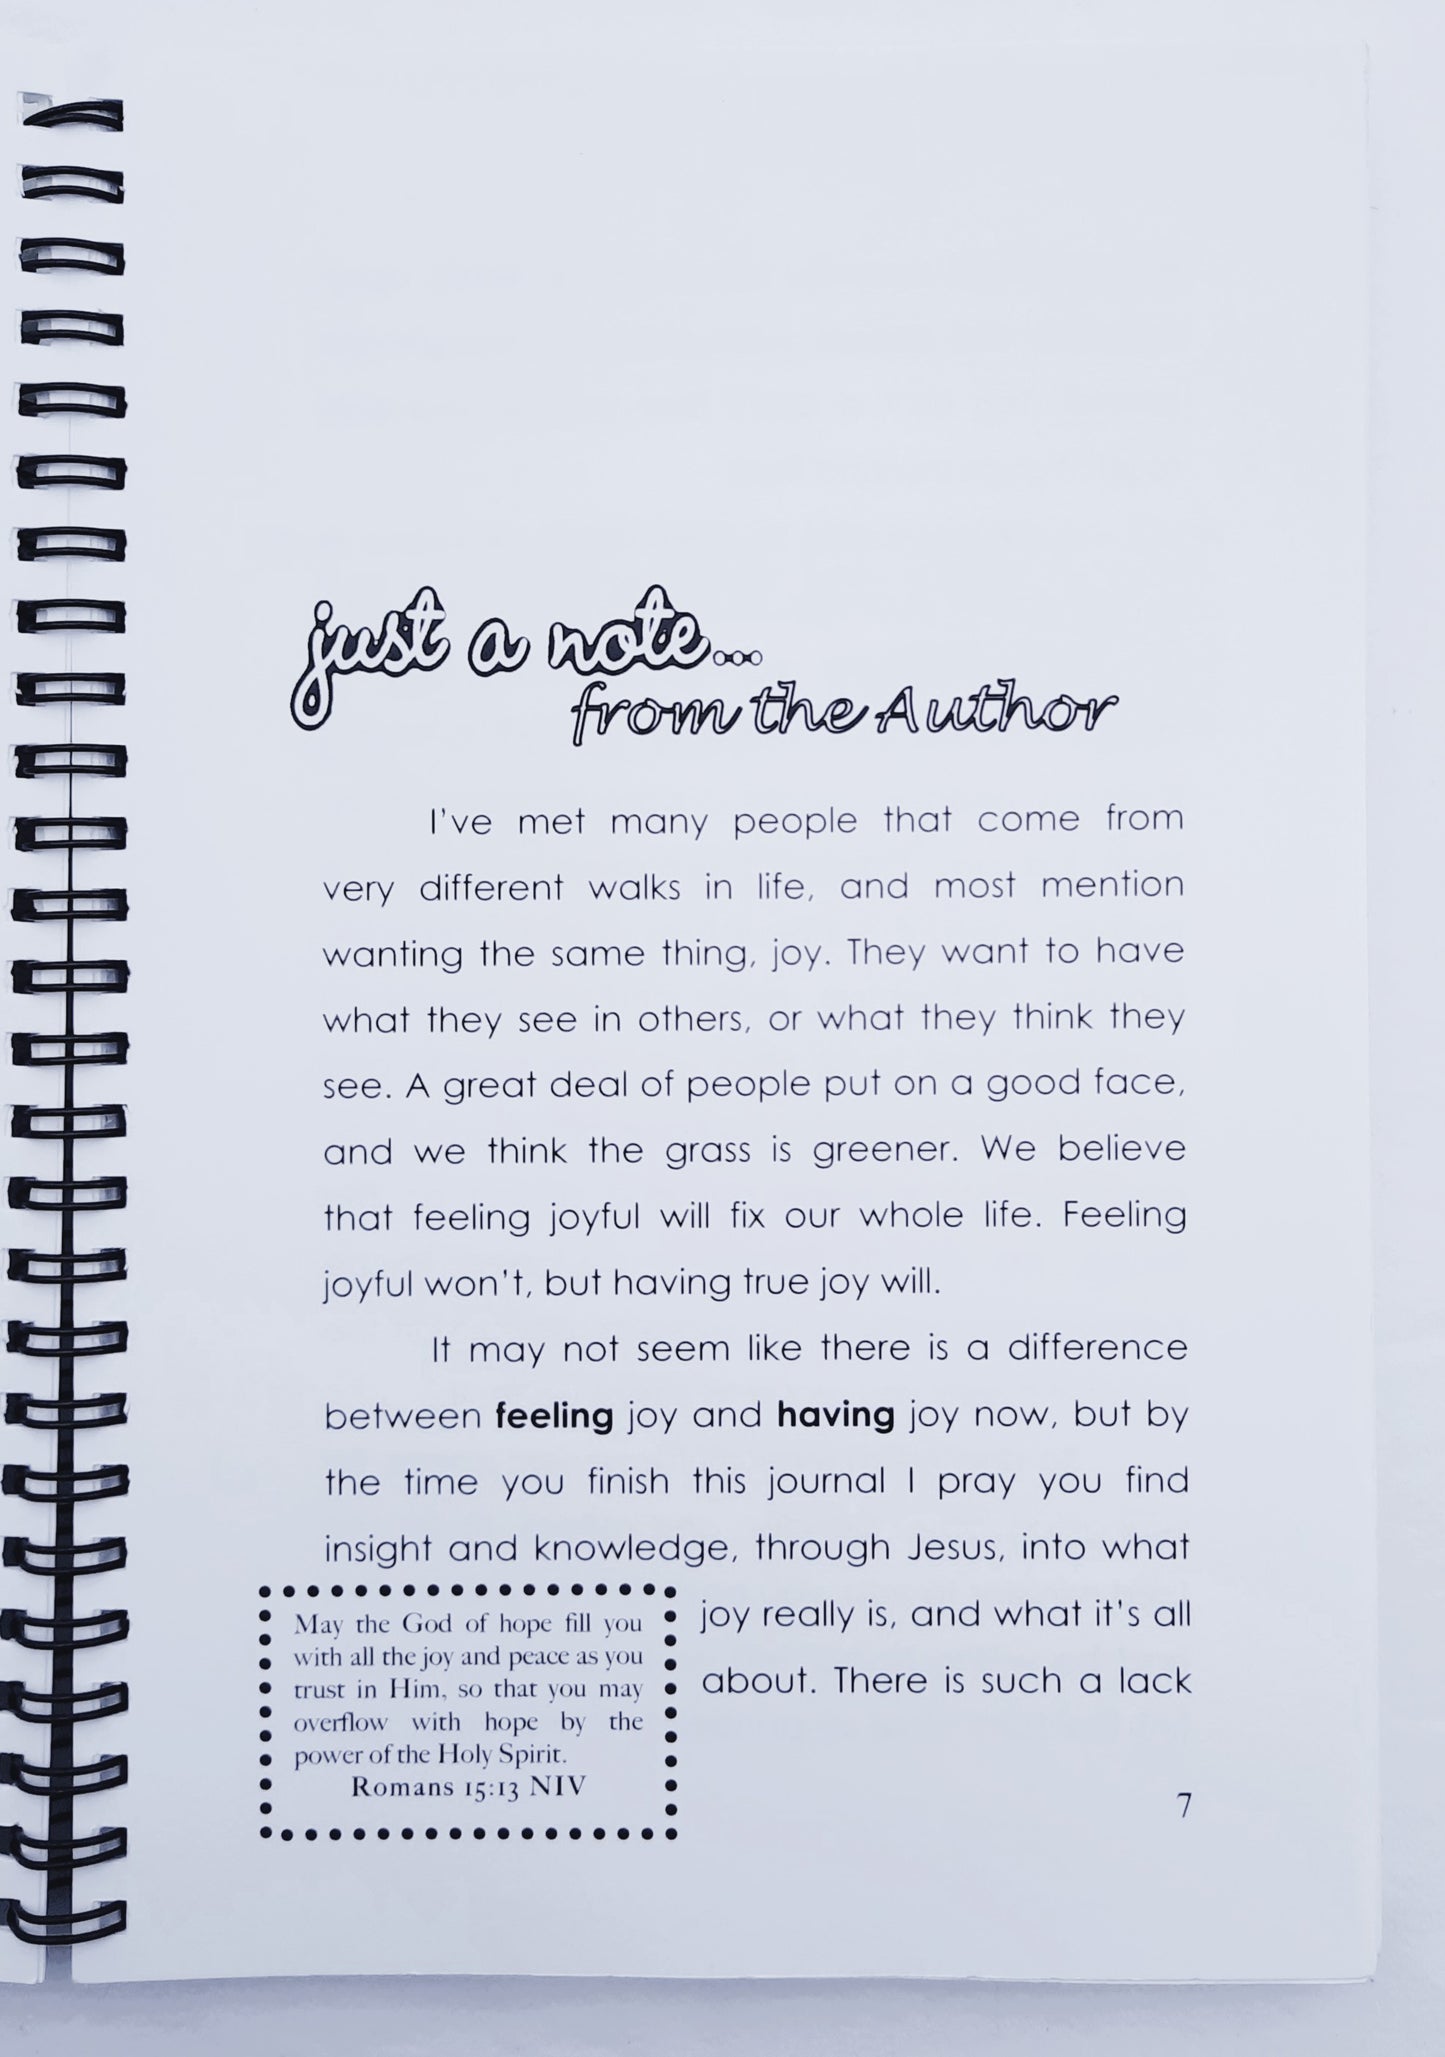 just a note...
from the Author
I've met many people that come from
very different walks in life, and most mention
wanting the same thing, joy. They want to have
what they see in others, or what they think they
see. A great deal of people put on a good face,
and we think the grass is greener. We believe
that feeling joyful will fix our whole life. Feeling
joyful won't, but having true joy will.
It may not seem like there is a difference
between feeling joy and having joy now, but by
the time you finish this journal I pray you find
insight and knowledge, through Jesus, into what
joy really is, and what it's all
about. There is such a lack
May the God of hope fill you
with all the joy and peace as you
trust in Him, so that you may
overflow with hope by the
power of the Holy Spirit.
Romans 15:13 NIV
7